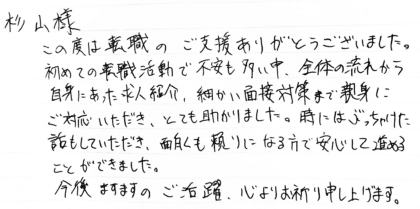 杉山様
この度は転職のご支援ありがとうございました。
初めての転職活動で不安も多い中、全体の流れから
自身にあった求人紹介、細かい面接対策まで親身に
ご対応いただき、とても助かりました。時にはぶっちゃけた
話もしていただき、面白くも頼りになる方で安心して進める
ことができました。
今後ますますのご活躍、心よりお祈り申し上げます。